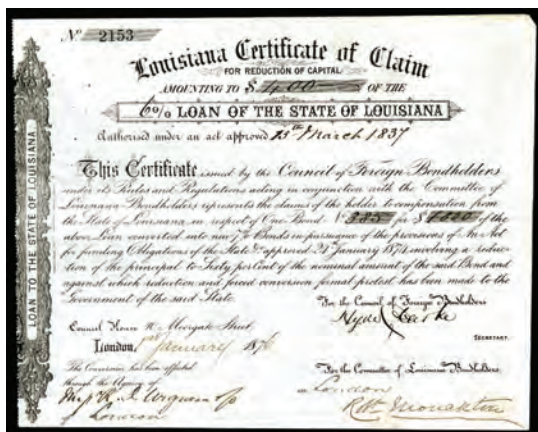 No. 2153
Louisiana Certificate of Claim
FOR REDUCTION OF CAPITAL
AMOUNTING TO $400 OF THE
6% LOAN OF THE STATE OF LOUISIANA
Authorised under an act approved 13th March 1837
This Certificate issued by the Council of Foreign Bondholders
under its Rules and Regulations acting in conjunction with the Committee of
Louisiana Bondholders represents the claims of the holder to compensation from
the State of Louisiana, in respect of One Bond No 385 for $1000 of the
above Loan converted into new 7% Bonds in pursuance of the provisions of An Act
for funding Obligations of the State &c approved 24 January 1874 involving a reduc-
tion of the principal to Sixty per Cent of the nominal amount of the said Bond and
against which reduction and forced conversion formal protest has been made to the
Government of the said State.
For the Council of Foreign Bondholders
Hyde Clarke
SECRETARY
Council House 10 Moorgate Street,
London, January 1876
The Conversion has been effected
through the Agency of
of London
For the Committee of Louisiana Bondholders.
in London
LOAN TO THE STATE OF LOUISIANA